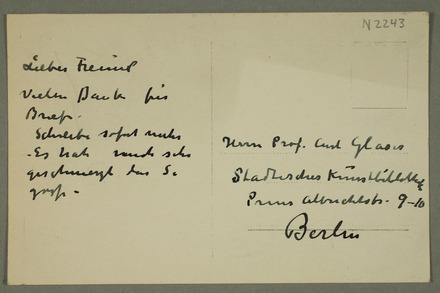 N 2243
Lieber Freund
Vielen Dank für
Brief.
Schreibe sofort mehr
- Es hat mich sehr
geschmerzt das
Herrn Prof. Curt Glaser
Staatliches Kunstbibliothek
Prinz Albrechtstr. 9-10
Berlin